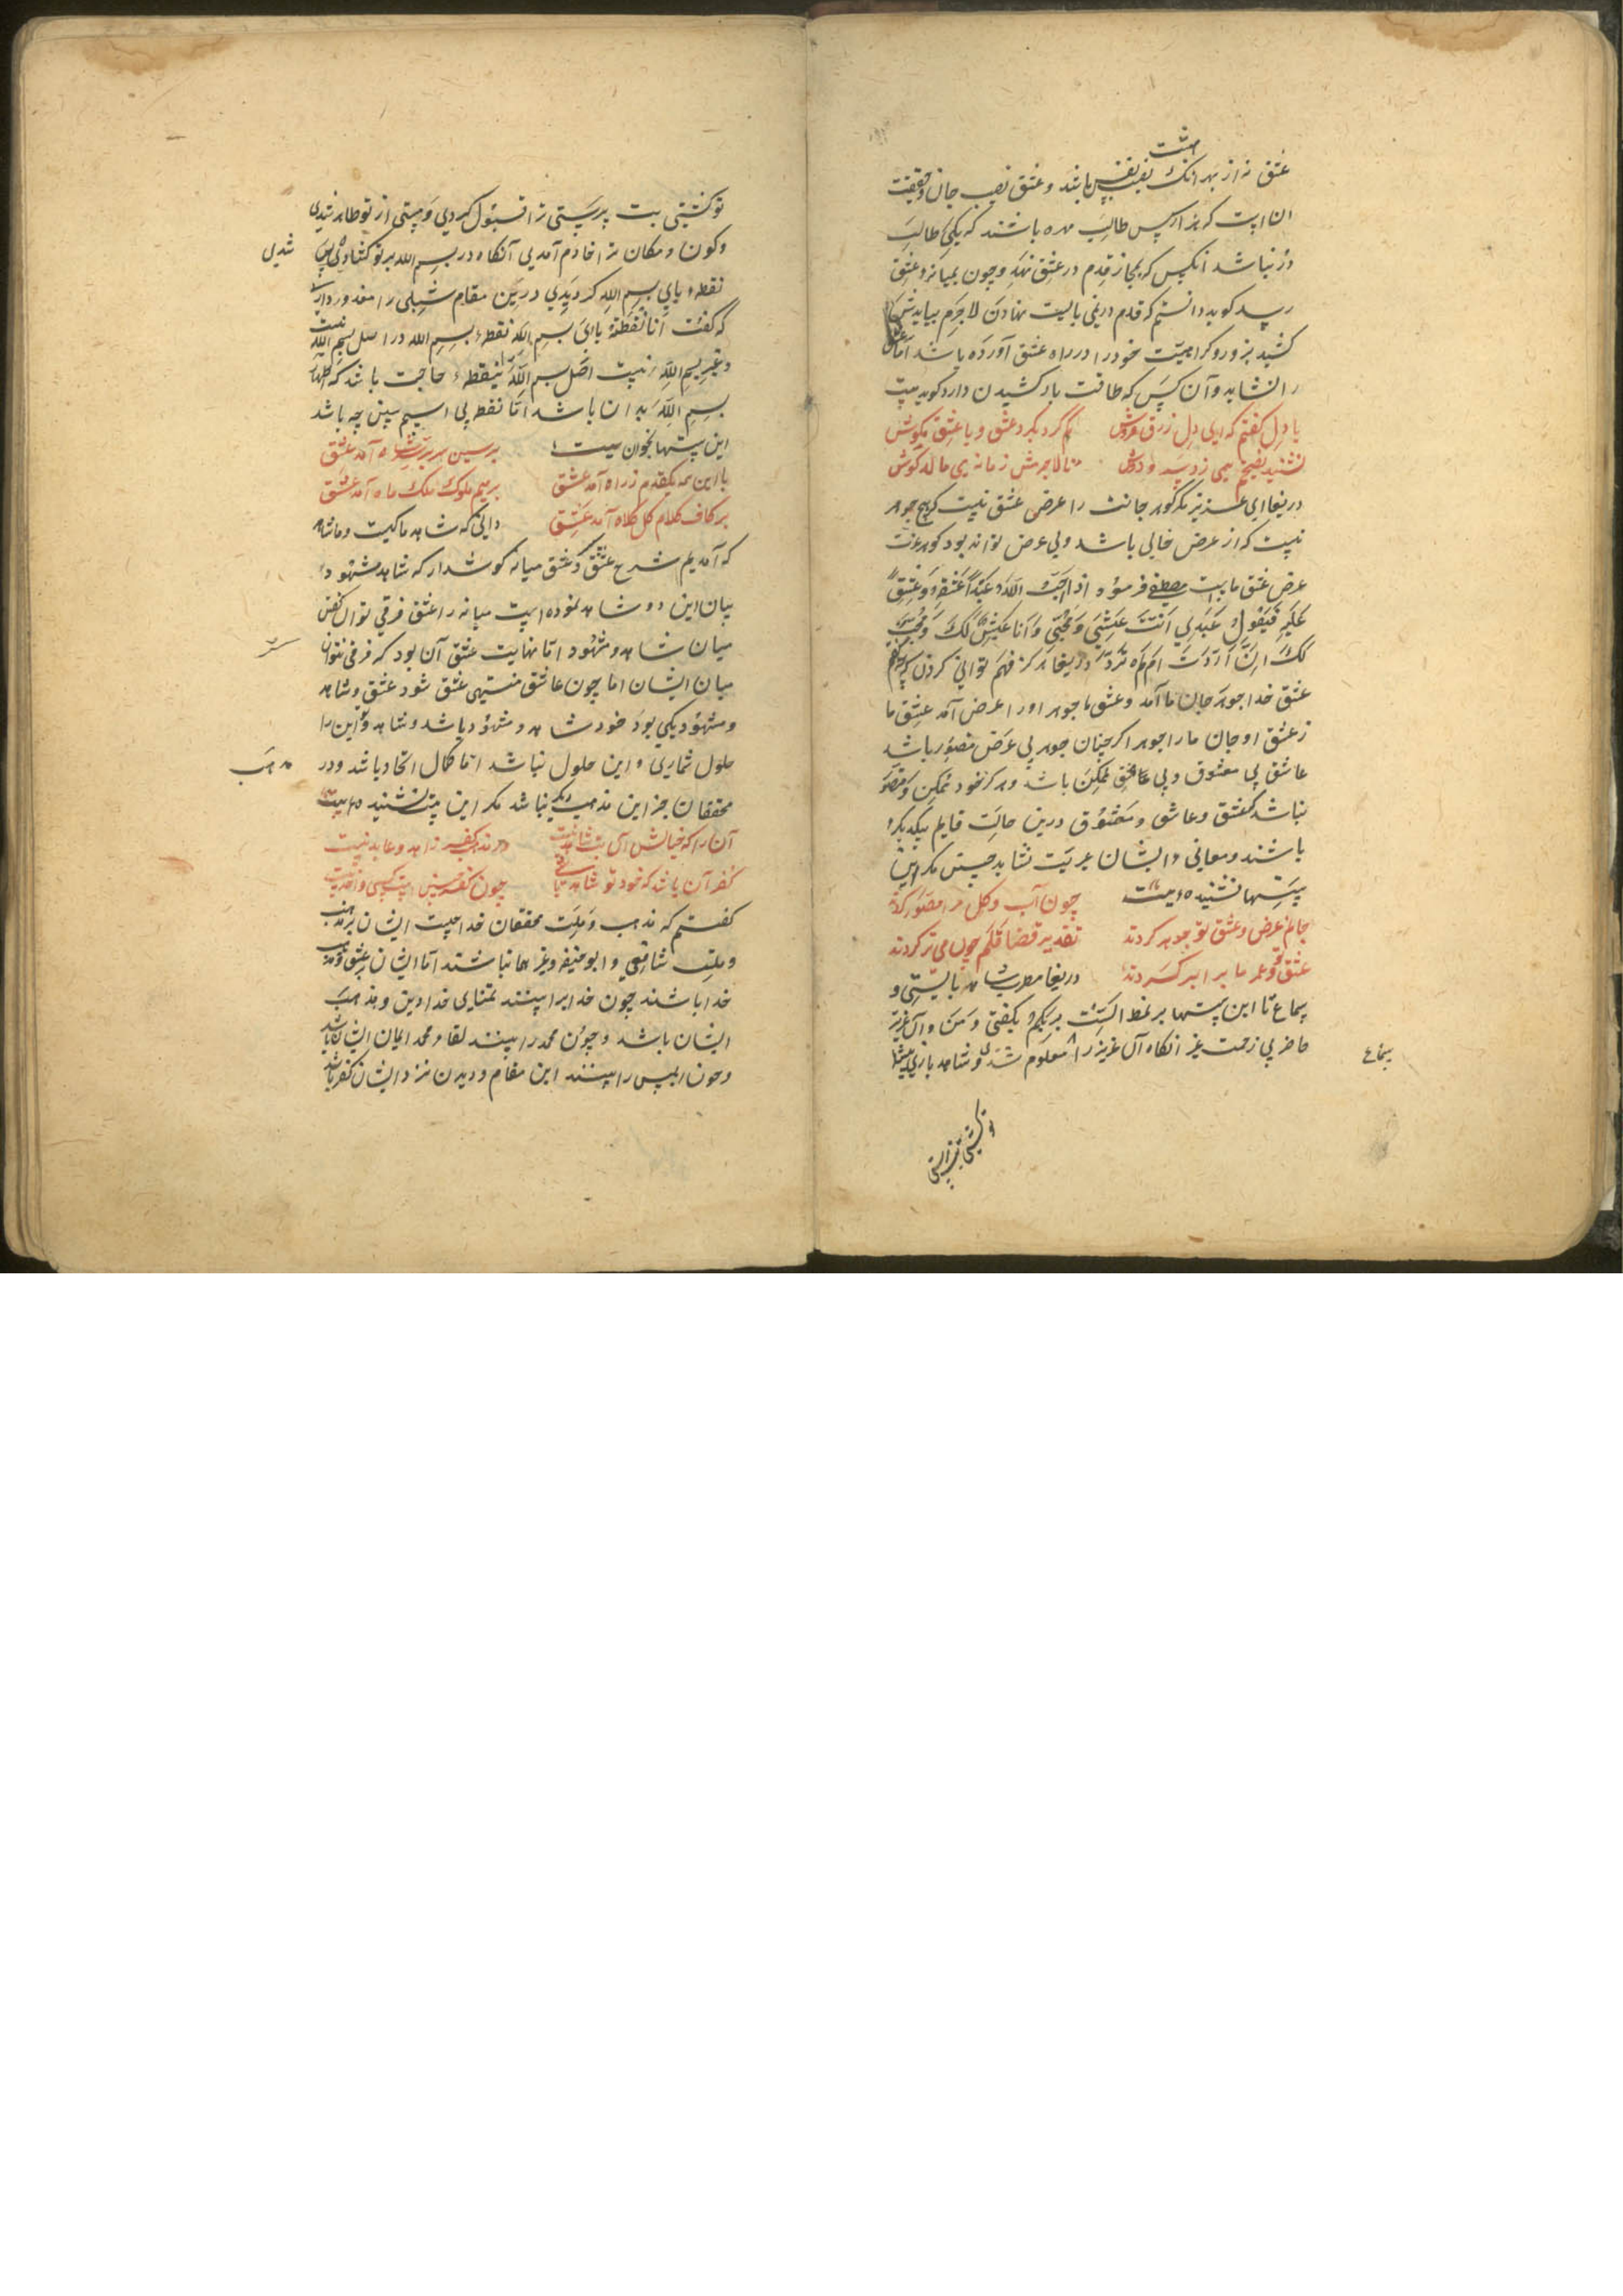 بهشت
عشق نه از بهر انک نصیب نفس باشد و عشق نصیب جان و حقیقت
ان است که هزار کس طالب مهره باشند که یکی طالب
در نباشد انکس که بمجاز قدم در عشق نهد و چون بمیانه عشق
رسد کوید دانستم که قدم در نمی بایست نهادن لاجرم بیایدش
کشید بزور و کراهیت خود را در راه عشق آورده باشد اما عشق
را نشاید و آن کس که طاقت بار کشیدن دارد کوید بیت
با دل کفتم که ای دل زرق فروش کم کرد بکرد عشق و با عشق مکوش
نشنید نصیحتم همی زد بر دوش تا لاجرمش زمانه می مالد کوش
دریغا ای عزیز مکر کوهر جانت را عرض عشق نیست که هیچ جوهر
نیست که از عرض خالی باشد و بی عرض نتواند بود کوهر عزت
عرض عشق ماست مصطفی فرمود اذا احب الله عبدا عشقه و عشق
علیه فیقول عبدی انت عاشقی و محبی و انا عاشق لک و محب
لک ان اردت ام لم ترد دریغا هرکز فهم توانی کردن که چه می کویم
عشق خدا جوهر جان ما آمد و عشق ما جوهر او را عرض آمد عشق ما
ز عشق او جان ما را جوهر اکر چنان جوهر بی عرض متصور باشد
عاشق بی معشوق و بی عاشق ممکن باشد و هرکز خود ممکن و متصور
نباشد که عشق و عاشق و معشوق درین حالت قایم بیکدیکر
باشند و معانی و ایشان غریت نشاید جستن مکر این
بیتها نشنیده بیت چون آب و کل مرا مصور کردند
جانم عرض و عشق تو جوهر کردند تقدیر قضا قلم چون می تر کردند
عشق تو و عمر ما برابر کردند دریغا مطرب شاهد بایستی و
سماع تا این بیتها بر نمط الست بربکم بکفتی و من و آن عزیز
حاضر بی زحمت غیر انکاه آن عزیز را معلوم شدی و شاهد بازی
سماع
تو کشتی بت پرستی را قبول کردی و هستی از تو ظاهر شدی
شدی
وکون و مکان ترا خادم آمدی آنکاه در بسم الله بر تو کشادی پس
نقطه بای بسم الله کردیدی درین مقام شبلی را معذور داری
که کفت انا نقطة بای بسم الله نقطه بسم الله در اصل بسم الله نیست
و غیر بسم الله نیست اصل بسم الله را بنقطه حاجت باشد که اظهار
بسم الله بدان باشد اما نقطه بی اسیم ببین چه باشد
این بیتها بخوان بیت بر سین سریر سر سپاه آمد عشق
با این همه یکقدم ز راه آمد عشق بر میم ملوک ملک ماه آمد عشق
بر کاف کلام کل کلاه آمد عشق دانی که شاهد ما کیست و ما شاهد
که آمدیم شرح عشق و عشق میانه کوش دار که شاهد مشهود
بیان این دو شاهد نموده است میانه را عشق فرقی توان کفتن
میان شاهد و مشهود اما نهایت عشق آن بود که فرقی نتوان
میان ایشان اما چون عاشق منتهی عشق شود عشق و شاهد
و مشهود یکی بود خود شاهد و مشهود باشد و شاهد و این را
حلول شماری و این حلول نباشد اما کمال اتحاد باشد و در
مذهب
محققان جز این مذهب دیکر نباشد مکر این بیت نشنیده بیت
آن را که خیالش آن بت شاهد نیست در مذهب کفر زاهد و عابد نیست
کفر آن باشد که خود تو شاهد باشی چون کفر چنین است کسی واحد نیست
کفتم که مذهب و ملت محققان خدا چیست ایشان بر مذهب
و ملت شافعی و ابو حنیفه و غیرهما نباشند اما ایشان بر عشق و مذهب
خدا باشند چون خدا برا بینند تمنای خدا دین و مذهب
ایشان باشد و چون محمد را بینند لقاء محمد ایمان ایشان باشد
و چون ابلیس را بینند این مقام و دیدن نزد ایشان کفر باشد